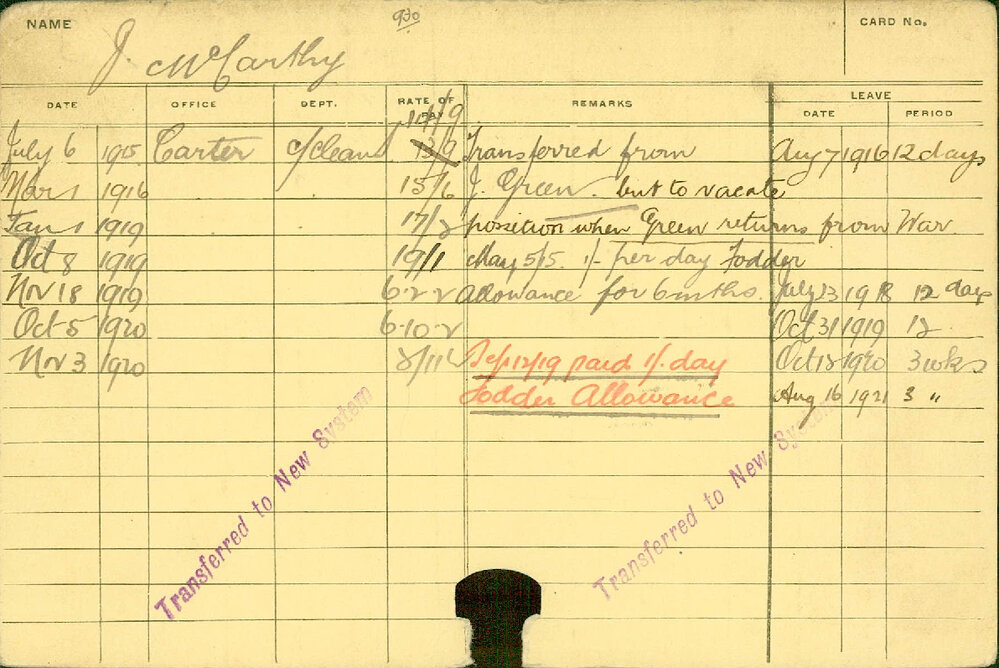 NAME
930
CARD No.
J. McCarthy
DATE OFFICE DEPT. RATE OF PAY REMARKS LEAVE
DATE PERIOD
14/9
July 6 1915 Carter c/cleans 13/9 Transferred from Aug 7 1916 12 days
Mar 1 1916 15/6 J. Green. but to vacate
Jan 1 1919 17/2 possition when Green returns from War.
Oct 8 1919 19/1 May 5/15. 1/- per day Fodder
Nov 18 1919 6-2-2 allowance for 6 mths. July 23 1918 12 days
Oct 5 1920 6-10-2 Oct 31 1919 12
Nov 3 1920 Sep 12/19 paid 1/. day Oct 18 1920 3 wks
Fodder Allowance Aug 16 1921 3 "
Transferred to New System
Transferred to New Sys